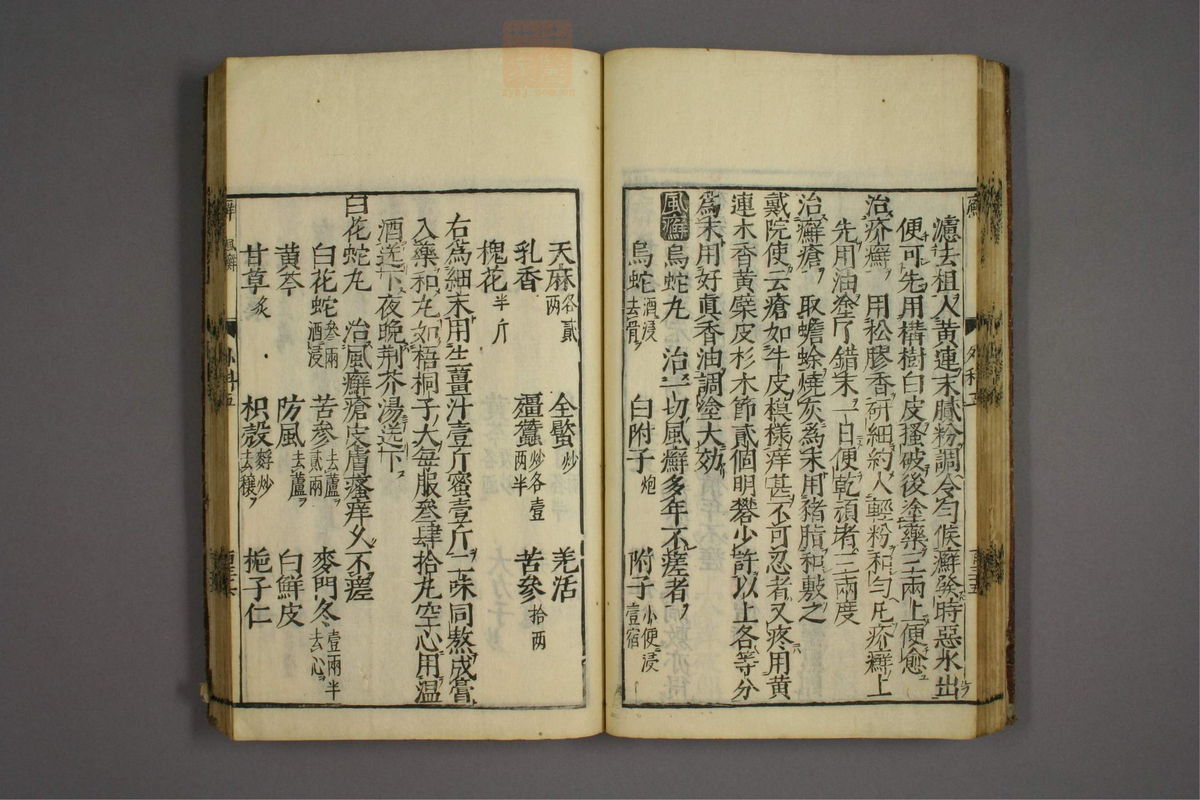 濾去柤入黃連末膩粉調令勻候癬發時惡水出
便可先用構樹白皮搔破後塗藥三兩上便愈
治疥癬 用松膠香研細約入輕粉和勻凡疥癬上
先用油塗了錯末一日便乾頑者三兩度
治癬瘡 取蟾蜍燒灰為末用豬脂和敷之
戴院使云瘡如牛皮模樣痒甚不可忍者又疼用黃
連木香黃檗皮杉木節貳個明礬少許以上各等分
為末用好真香油調塗大効
風癬 烏蛇丸 治一切風癬多年不瘥者
烏蛇酒浸去骨 白附子炮 附子小便浸壹宿
天麻各貳兩 全蝎炒 羌活
乳香 殭蠶炒各壹兩半 苦參拾兩
槐花半斤
右為細末用生薑汁壹斤蜜壹斤二味同熬成膏
入藥和丸如梧桐子大每服叁肆拾丸空心用温
酒送下夜晚荊芥湯送下
白花蛇丸 治風癬瘡皮膚瘙痒久不瘥
白花蛇叁兩酒浸 苦參去蘆貳兩 麥門冬壹兩半去心
黄芩 防風去蘆 白鮮皮
甘草炙 枳殼去穰麩炒 梔子仁